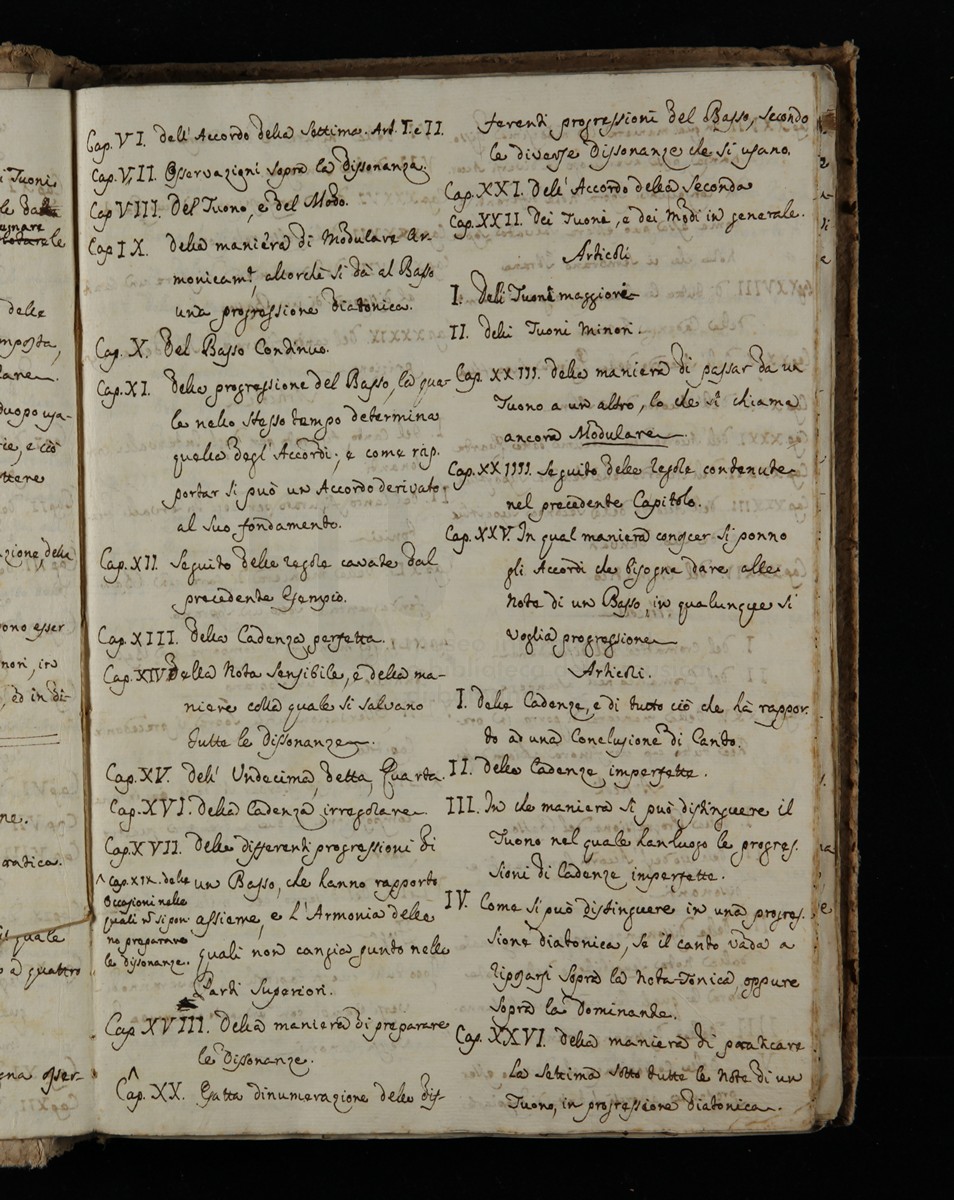 i Tuoni,
le dalla
le
delle
mposta,
lare.
duopo usa-
rie, e ciò
ttere
azione, della
ono esser
nori, in
, ed in di-
ne.
ratica.
il quale
o a quattro
gna osser-
Cap. VI. dell'Accordo della Settima. Art. I. e II.
Cap. VII. Osservazioni sopra la dissonanza.
Cap VIII. Del Tuono, e del Modo.
Cap IX. della maniera di Modulare Ar-
monicam.te, allorchè si dà al Basso
una progressione diatonica.
Cap. X. Del Basso Continuo.
Cap. XI. della progressione del Basso, la qua-
le nello stesso tempo determina
quella degl'Accordi; e come rap-
portar si può un Accordo derivato
al suo fondamento.
Cap. XII. Seguito delle regole cavate dal
precedente Esempio.
Cap. XIII. della Cadenza perfetta.
Cap. XIV. Della Nota sensibile, e della ma-
niera colla quale si salvano
tutte le dissonanze.
Cap. XV. dell'Undecima, detta, Quarta.
Cap. XVI. della Cadenza irregolare.
Cap. XVII. delle differenti progressioni di
un Basso, che hanno rapporto
assieme, e l'Armonia delle
quali non cangia punto nelle
Parti Superiori.
^ Cap. XIX. delle
Occasioni nelle
quali nō si pon-
no preparare
le dissonanze.
Cap XVIII. della maniera di preparare
le dissonanze.
^
Cap. XX. Esatta dinumerazione delle dif-
ferenti progressioni del Basso, secondo
le diverse dissonanze che si usano.
Cap. XXI. dell'Accordo della Seconda
Cap. XXII. Dei Tuoni, e dei Modi in generale.
Articoli
I. deli Tuoni maggiori
II. deli Tuoni Minori.
Cap. XXIII. della maniera di passar da un
Tuono a un altro, lo che si chiama
ancora Modulare
Cap. XXIIII. Seguito delle regole contenute
nel precedente Capitolo.
Cap. XXV. In qual maniera conoscer si ponno
gli Accordi che bisogna dare alle
Note di un Basso, in qualunque si
voglia progressione
Articoli.
I. delle Cadenze, e di tutto ciò che hà rappor-
to ad una Conclusione di Canto.
II. delle Cadenze imperfette.
III. In che maniera si può distinguere il
Tuono nel quale han luogo le progres-
sioni di Cadenze imperfette.
IV. Come si può distinguere in una progres-
sione diatonica, se il canto vada a
riposarsi sopra la Nota Tonica, oppure
sopra la Dominante.
Cap. XXVI. della maniera di praticare
la Settima sotto tutte le Note di un
Tuono, in progressione diatonica.